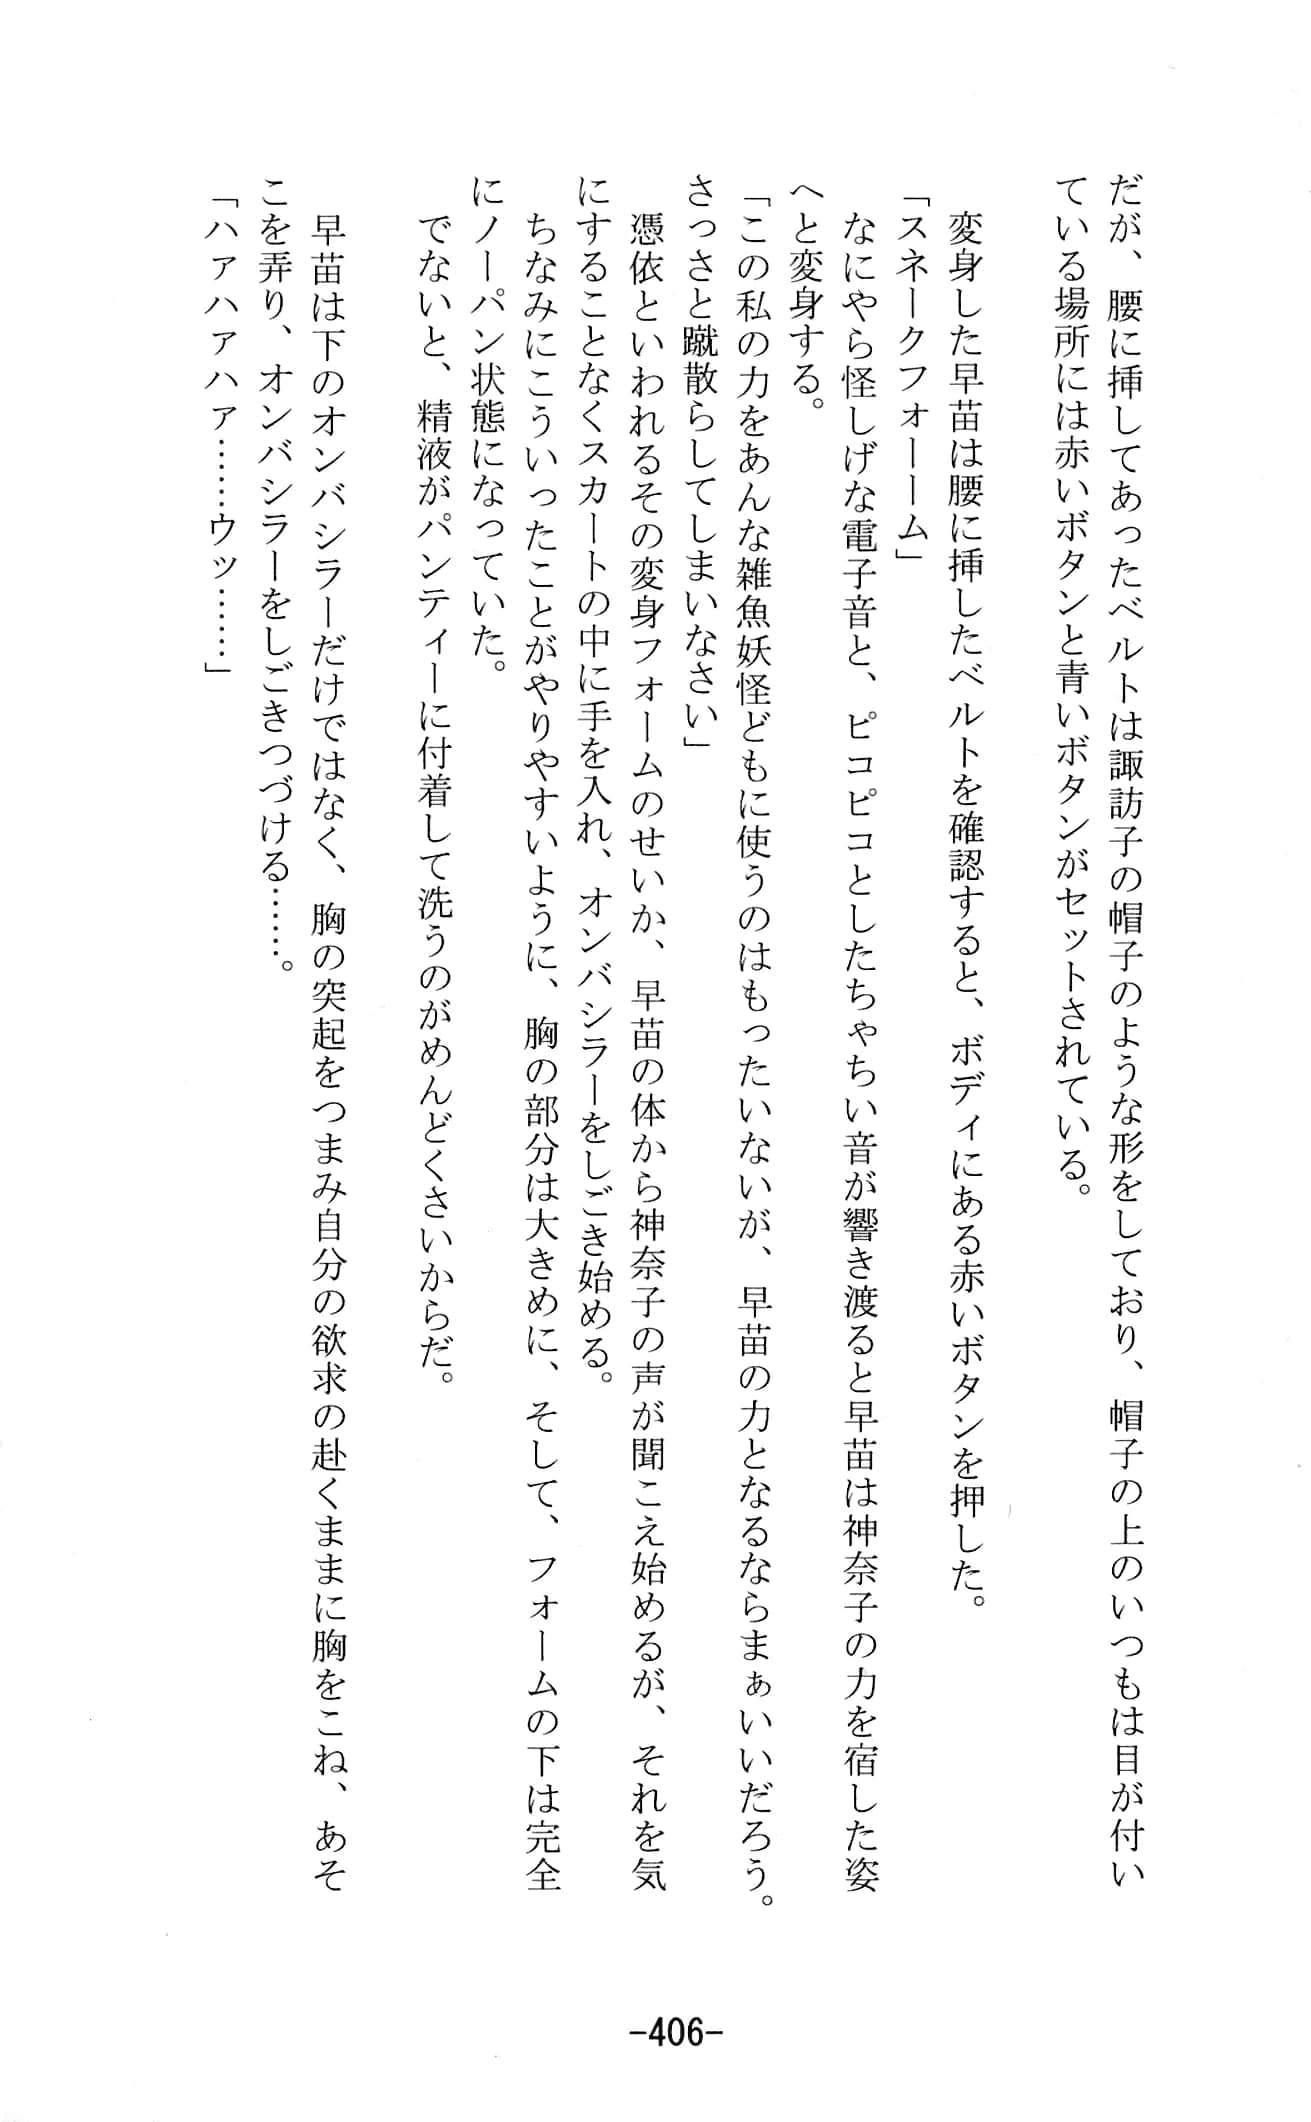 だが、腰に挿してあったベルトは諏訪子の帽子のような形をしており、帽子の上のいつもは目が付い
ている場所には赤いボタンと青いボタンがセットされている。
変身した早苗は腰に挿したベルトを確認すると、ボディにある赤いボタンを押した。
「スネークフォーーム」
なにやら怪しげな電子音と、ピコピコとしたちゃちい音が響き渡ると早苗は神奈子の力を宿した姿
へと変身する。
「この私の力をあんな雑魚妖怪どもに使うのはもったいないが、早苗の力となるならまぁいいだろう。
さっさと蹴散らしてしまいなさい」
憑依といわれるその変身フォームのせいか、早苗の体から神奈子の声が聞こえ始めるが、それを気
にすることなくスカートの中に手を入れ、オンバシラーをしごき始める。
ちなみにこういったことがやりやすいように、胸の部分は大きめに、そして、フォームの下は完全
にノーパン状態になっていた。
でないと、精液がパンティーに付着して洗うのがめんどくさいからだ。
早苗は下のオンバシラーだけではなく、胸の突起をつまみ自分の欲求の赴くままに胸をこね、あそ
こを弄り、オンバシラーをしごきつづける……。
「ハァハァハァ……ウッ……」
-406-